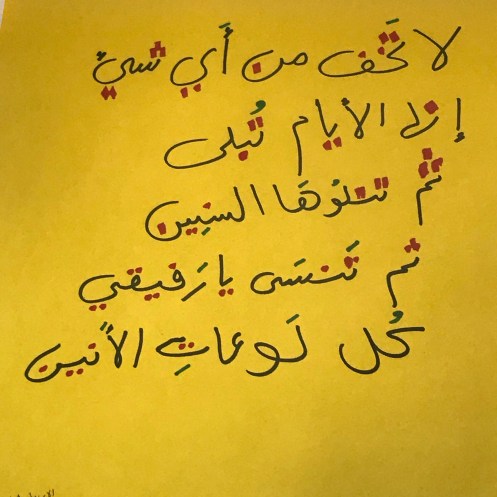 لا تَخف من أَي شيءٍ
إنها الأيام تُبلى
ثم تتلوهَا السنِين
ثم تَنسَى يا رَفيقي
كُل لَوعاتِ الأَنين